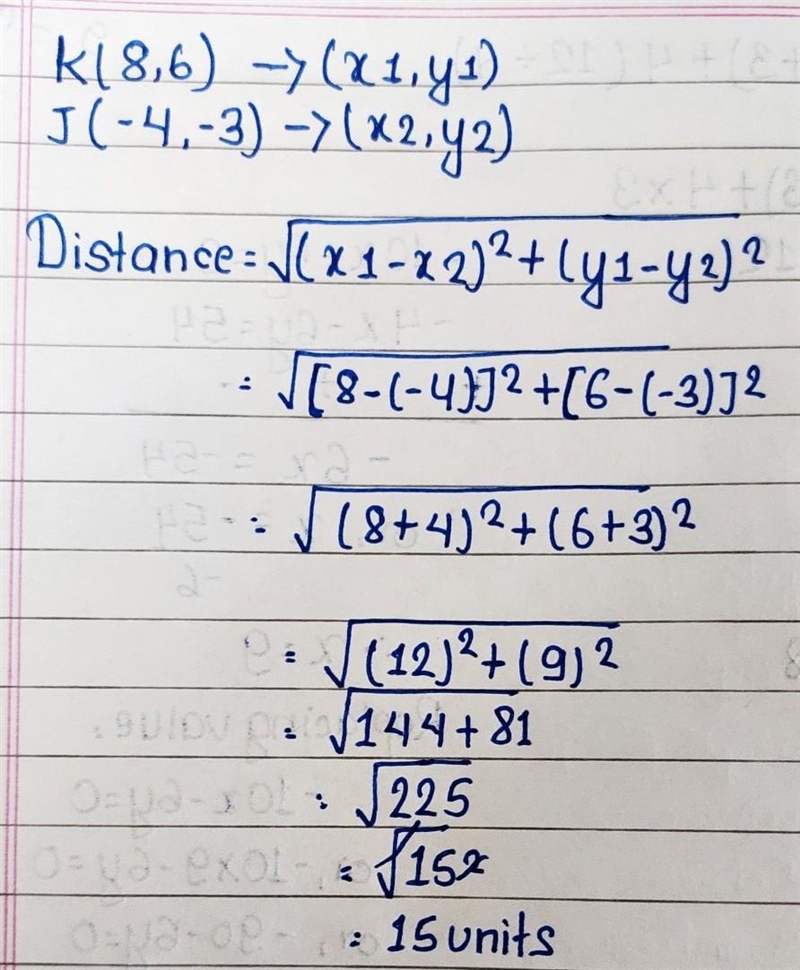 K(8,6) → (x1,y1)
J(-4,-3) → (x2,y2)
Distance = √(x1-x2)²+(y1-y2)²
= √[8-(-4)]²+[6-(-3)]²
= √(8+4)²+(6+3)²
= √(12)²+(9)²
= √144+81
= √225
= √15²
= 15 units